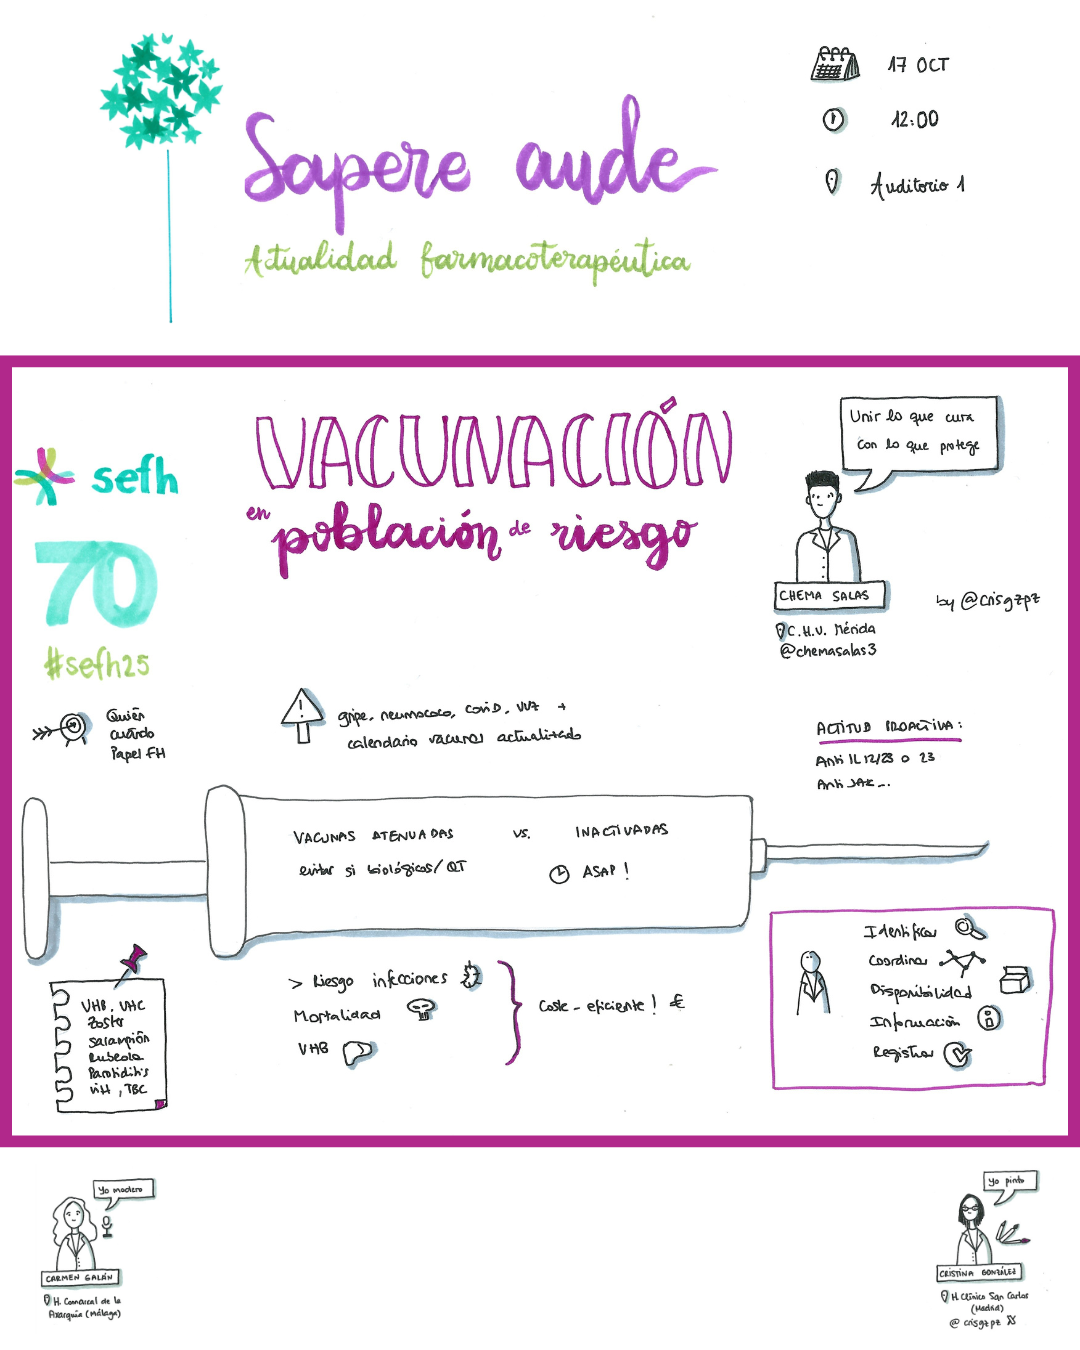 17 OCT
12:00
Auditorio 1
Sapere aude
Actualidad farmacoterapéutica
sefh
70
#sefh25
VACUNACIÓN
en población de riesgo
Unir lo que cura
con lo que protege
CHEMA SALAS
C.H.U. Mérida
@chemasalas3
by @crisgzpz
Quién
cuándo
Papel FH
gripe, neumococo, covid, VVZ +
calendario vacunas actualizado
ACTITUD PROACTIVA:
Anti IL 12/23 o 23
Anti JAK...
VACUNAS ATENUADAS vs. INACTIVADAS
evitar si biológicos/QT
ASAP!
VHB, VHC
Zoster
Sarampión
Rubeola
Parotiditis
VIH, TBC
> Riesgo infecciones
Mortalidad
VHB
Coste-eficiente! €
Identificar
Coordinar
Disponibilidad
Información
Registrar
Yo modero
CARMEN GALÁN
H. Comarcal de la
Axarquía (Málaga)
yo pinto
CRISTINA GONZÁLEZ
H. Clínico San Carlos
(Madrid)
@crisgzpz